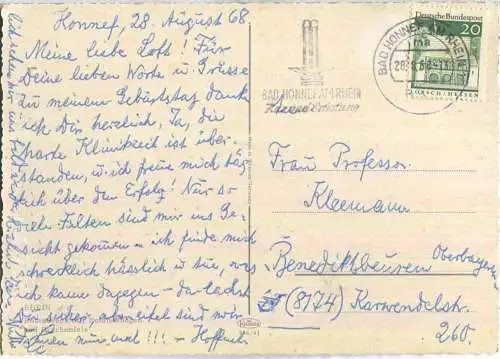 Honnef, 28. August 68
Meine liebe Loft! Für
Deine lieben Worte u. Grüsse
zu meinem Geburtstag dank
ich Dir herzlich. Ja, die
harte Klinikzeit ist über-
standen, u. ich freue mich täg
lich über den Erfolg! Nur so
viele Falten sind mir ins Ge-
sicht gekommen – ich finde mich
schrecklich hässlich u. tue, was
ich kann dagegen – da lachst
Du sicher, aber eitel sind wir
nun mal!!! – Hoffentl.
BERLIN
BAD HONNEF AM RHEIN
BAD HONNEF AM RHEIN
Deutsche Bundespost
20
LORSCH · HESSEN
Frau Professor
Kleemann
Benediktbeuren
Oberbayern
(8174) Karwendelstr.
260.